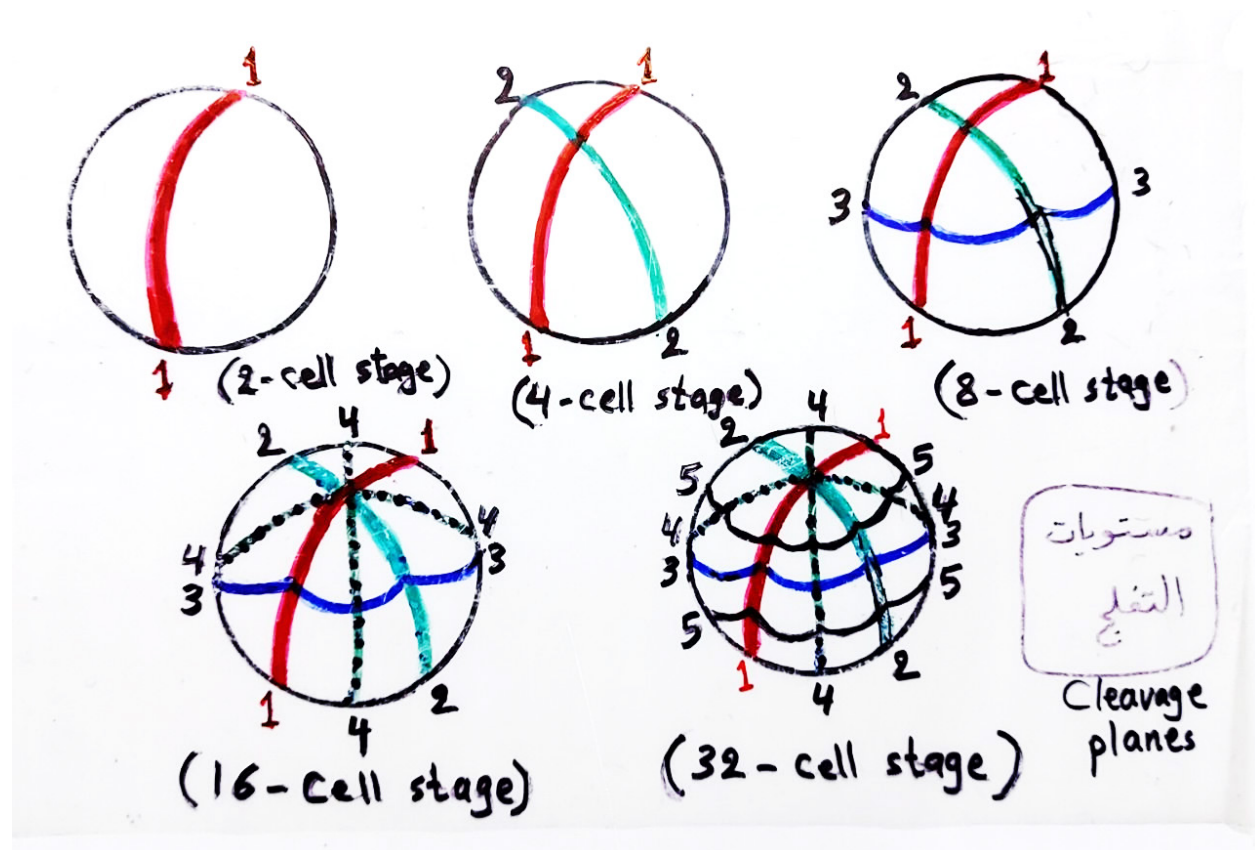 1
1
(2-cell stage)
2
1
1
2
(4-cell stage)
2
1
3
3
1
2
(8-cell stage)
4
2
1
4
4
3
3
1
4
2
(16-cell stage)
4
2
1
5
5
4
4
3
3
5
5
1
4
2
(32-cell stage)
مستويات
التفلج
Cleavage
planes